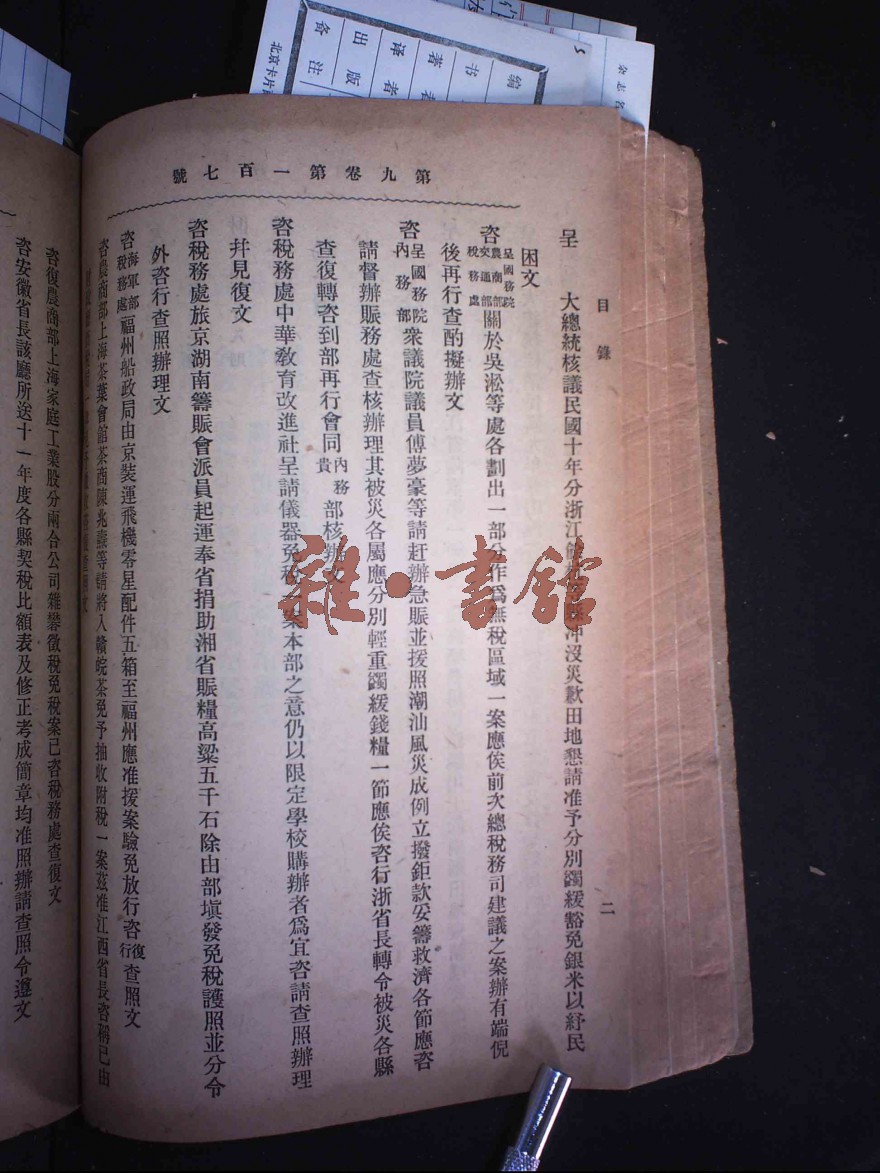 第九卷第一百七號
目錄
二
呈 大總統核議民國十年分浙江 沖沒災歉田地懇請准予分別蠲緩豁免銀米以紓民
困文
咨呈國務院 農商部 交通部 稅務處 關於吳淞等處各劃出一部分作爲無稅區域一案應俟前次總稅務司建議之案辦有端倪
後再行查酌擬辦文
咨呈國務院 內務部 衆議院議員傅夢豪等請赶辦急賑並援照潮汕風災成例立撥鉅款妥籌救濟各節應咨
請督辦賑務處查核辦理其被災各屬應分別輕重蠲緩錢糧一節應俟咨行浙省長轉令被災各縣
查復轉咨到部再行會同 內務 貴 部核辦文
咨稅務處中華敎育改進社呈請儀器免稅一案本部之意仍以限定學校購辦者爲宜咨請查照辦理
幷見復文
咨稅務處旅京湖南籌賑會派員起運奉省捐助湘省賑糧高粱五千石除由部塡發免稅護照並分令
外咨行查照辦理文
咨 海軍部 稅務處 福州船政局由京裝運飛機零星配件五箱至福州應准援案驗免放行咨 復 行 查照文
咨農商部上海茶葉會館茶商陳兆燾等請將入贛皖茶免予抽收附稅一案茲准江西省長咨稱已由
咨復農商部上海家庭工業股分兩合公司雜礬徵稅免稅案已咨稅務處查復文
咨安徽省長該廳所送十一年度各縣契稅比額表及修正考成簡章均准照辦請查照令遵文
雜·書館
编
书
著者
译者
出版
备注
北京卡片